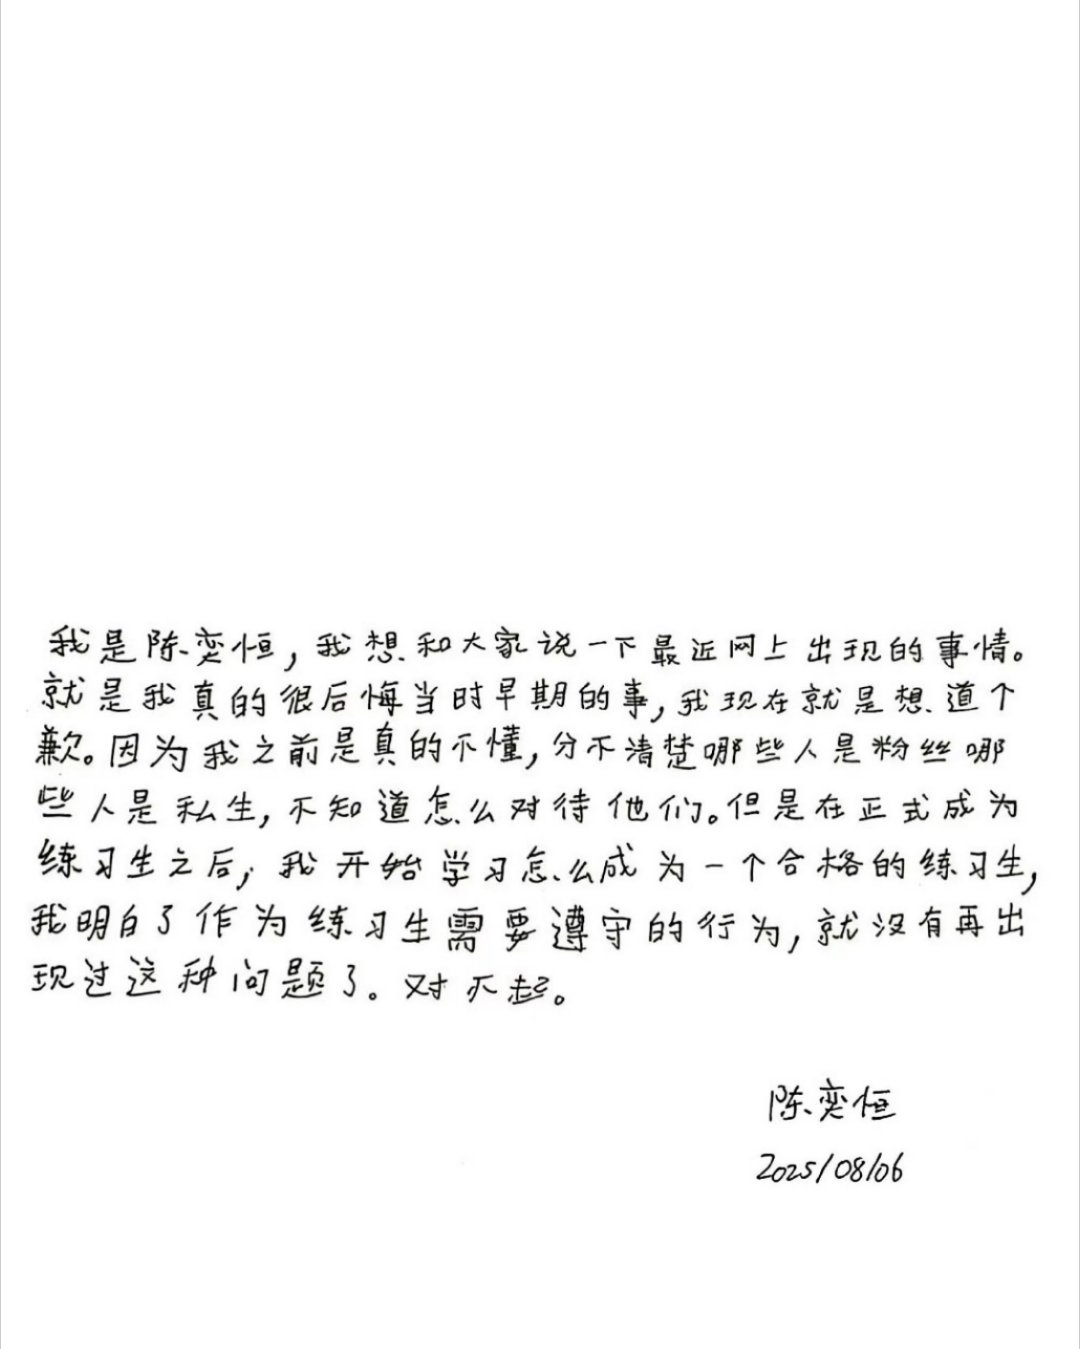 我是陈奕恒，我想和大家说一下最近网上出现的事情。
就是我真的很后悔当时早期的事，我现在就是想道个
歉。因为我之前是真的不懂，分不清楚哪些人是粉丝哪
些人是私生，不知道怎么对待他们。但是在正式成为
练习生之后，我开始学习怎么成为一个合格的练习生，
我明白了作为练习生需要遵守的行为，就没有再出
现过这种问题了。对不起。
陈奕恒
2025/08/06